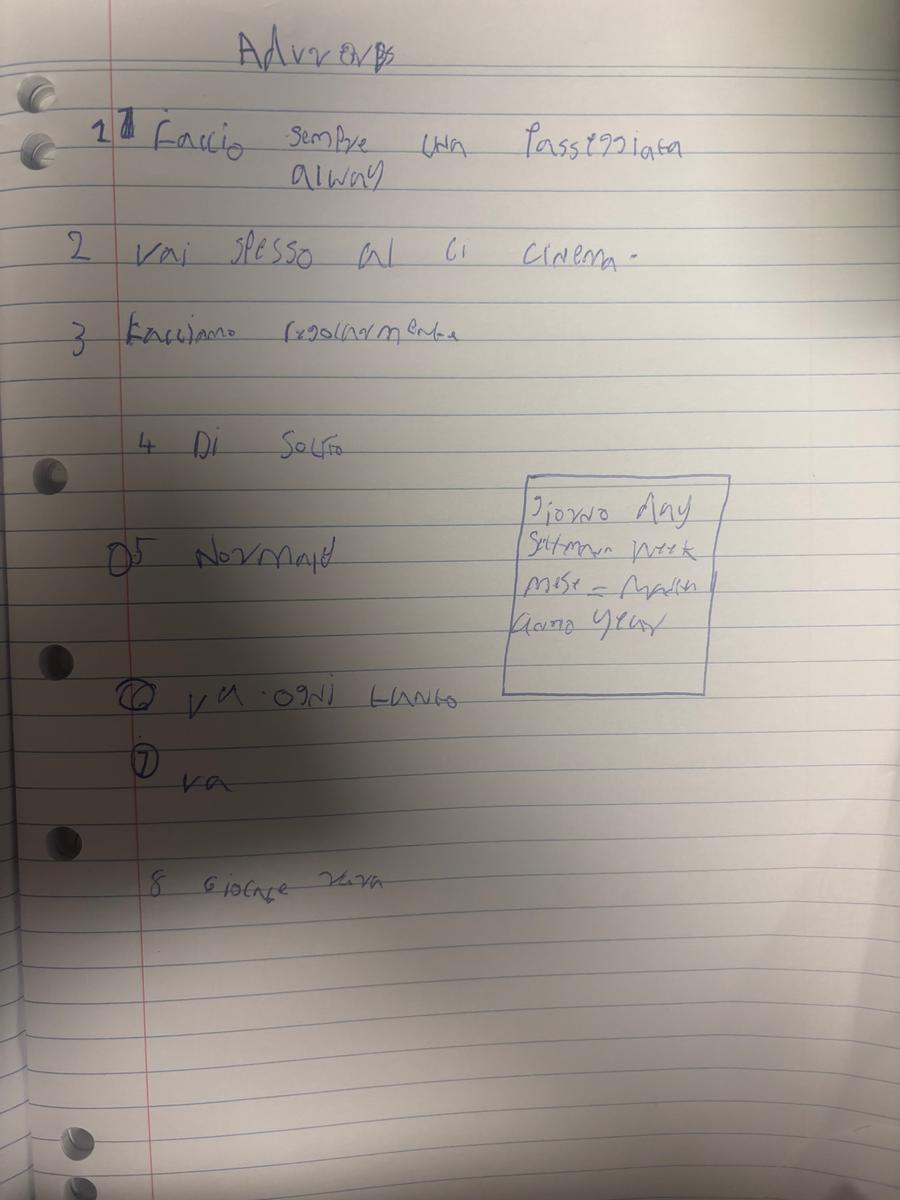 Adverbs
1 Faccio sempre una Passeggiata
alway
2 vai spesso al ci cinema.
3 Facciamo regolarmente
4 Di solito
giorno day
5 Normal
week
mese =
anno year
6 va ogni tanto
7
va
8 giocate